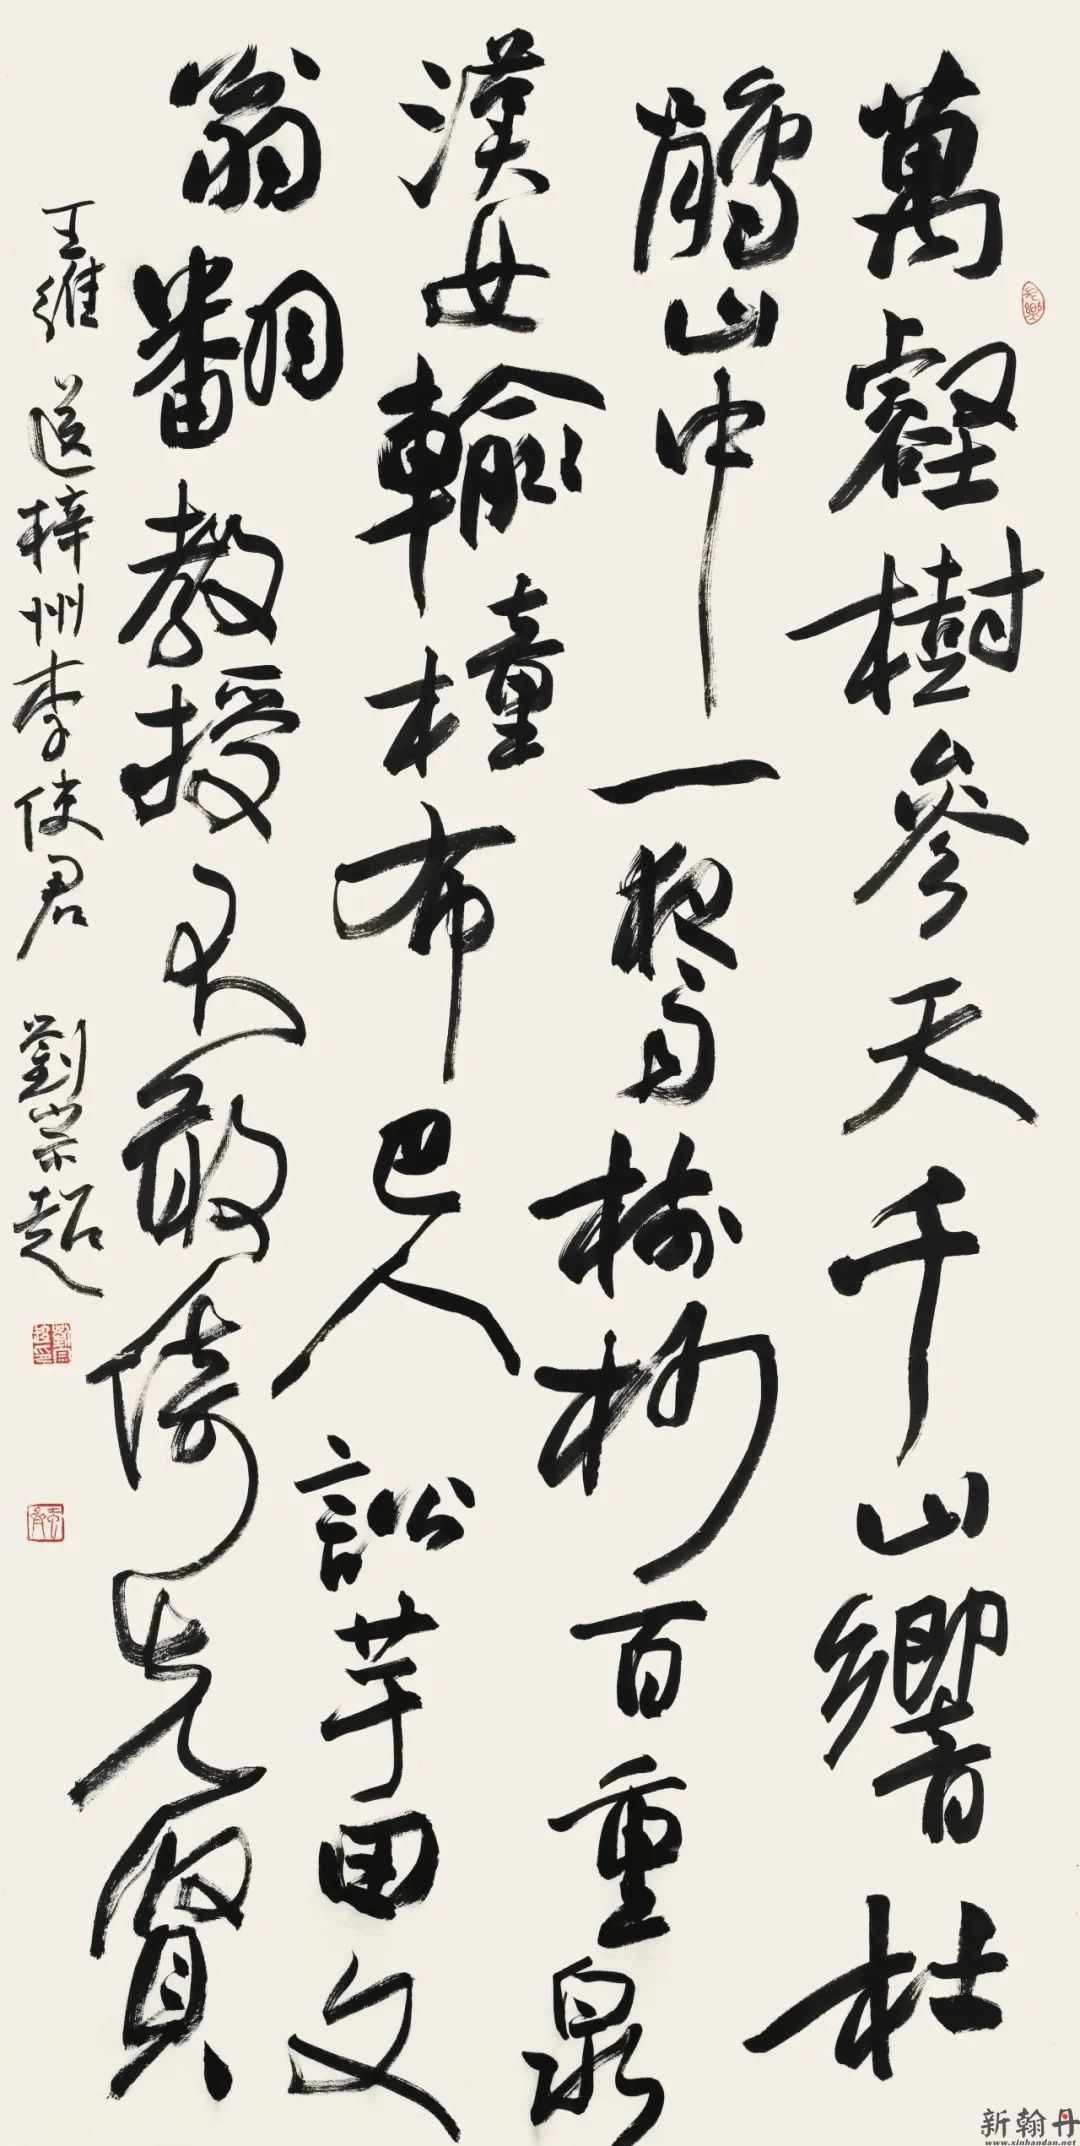 萬壑樹參天千山響杜
鵑山中一夜雨樹杪百重泉
漢女輸橦布巴人訟芋田文
翁翻教授不敢倚先賢
王維 送梓州李使君 劉崇超
新翰丹
www.xinhandan.net